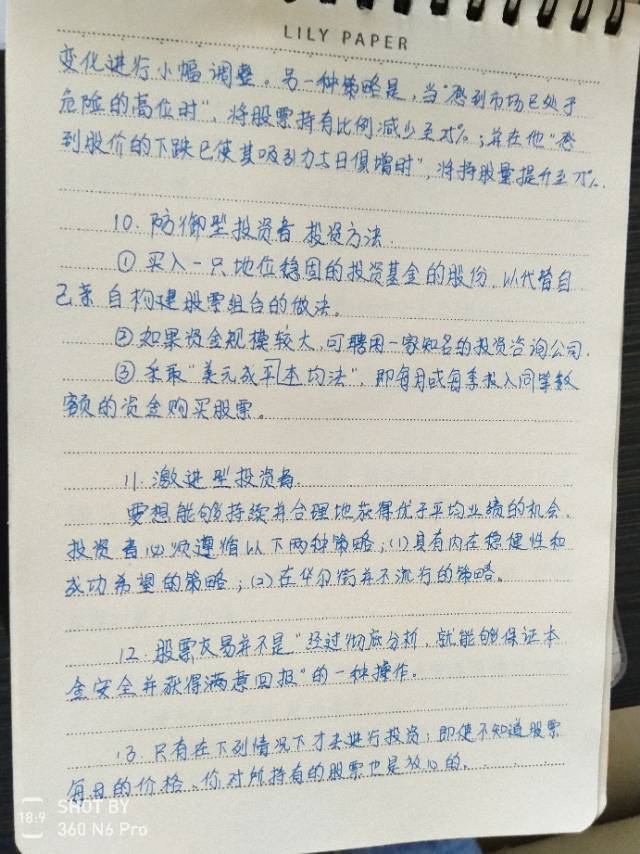 LILY PAPER
变化进行小幅调整。另一种策略是，当"感到市场已处于
危险的高位时"，将股票持有比例减少至25%；并在他"感
到股价的下跌已使其吸引力与日俱增时"，将持股量提升至75%。
10. 防御型投资者 投资方法.
① 买入一只地位稳固的投资基金的股份，以代替自
己亲自构建股票组合的做法。
② 如果资金规模较大，可聘用一家知名的投资咨询公司.
③ 采取"美元成本平均法"，即每月或每季投入同等数
额的资金购买股票。
11. 激进型投资者.
要想能够持续并合理地获得优于平均业绩的机会，
投资者必须遵循以下两种策略；(1)具有内在稳健性和
成功希望的策略；(2)在华尔街并不流行的策略。
12. 股票交易并不是"经过彻底分析，就能够保证本
金安全并获得满意回报"的一种操作。
13. 只有在下列情况下才去进行投资：即使不知道股票
每日的价格，你对所持有的股票也是放心的。
18:9
SHOT BY
360 N6 Pro